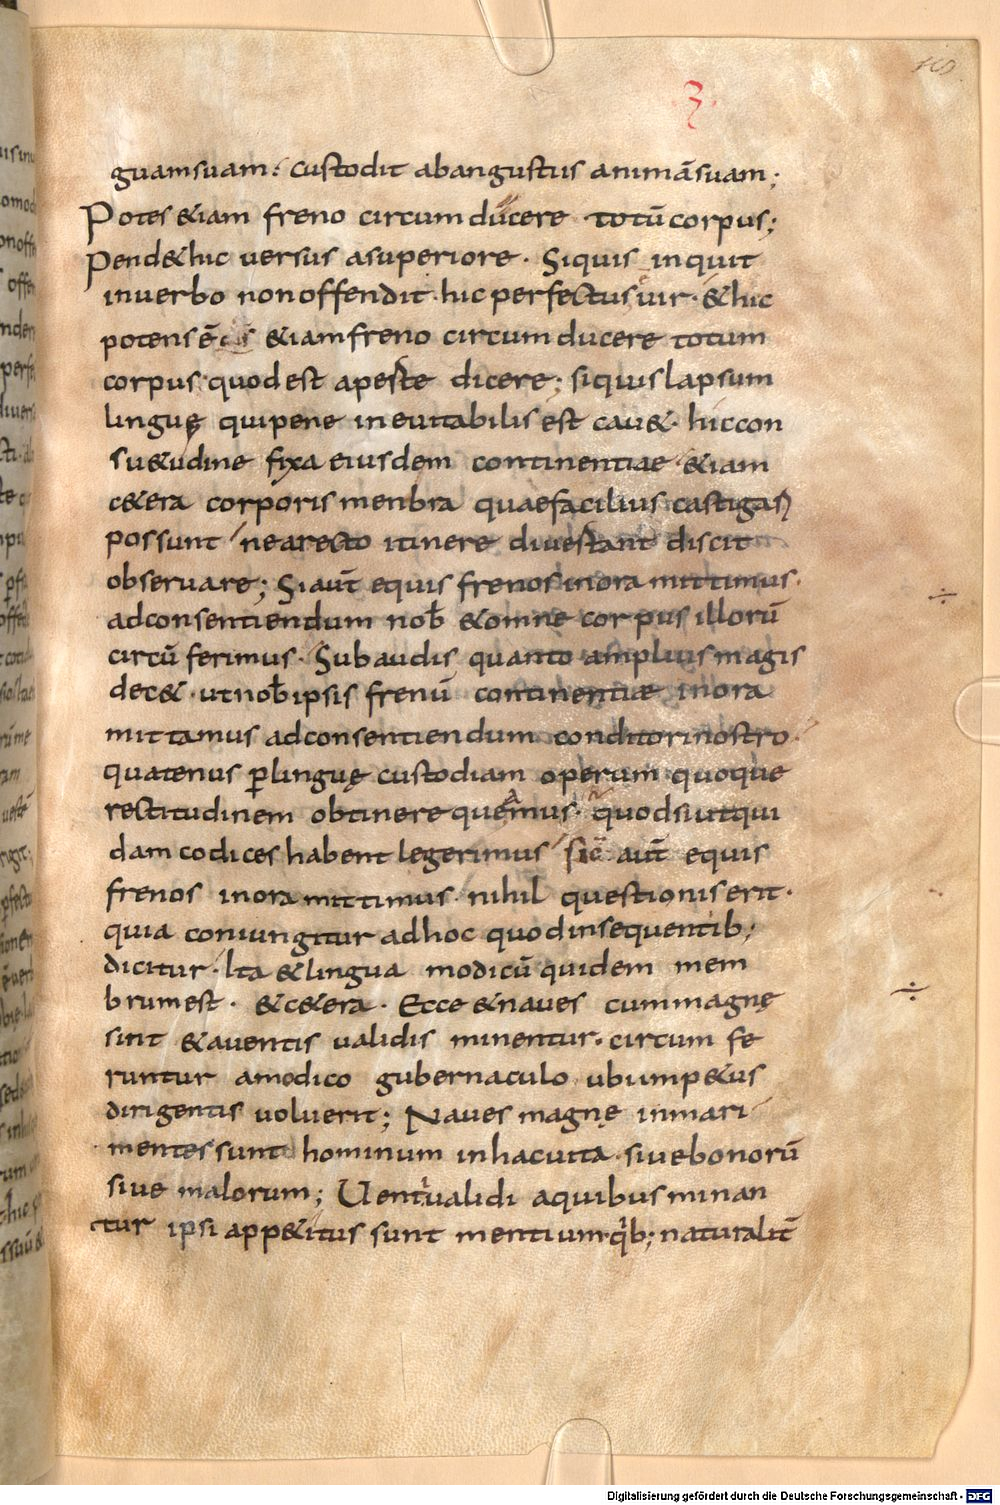 guam suam. custodit ab angustiis animā suam;
Potes &iam freno circum ducere totū corpus;
Pend& hic versus a superiore. Siquis inquit
in verbo non offendit. hic perfectus vir. & hic
potens ē &iam freno circum ducere totum
corpus. quod est apeste dicere; siquis lapsum
linguę qui pene inevitabilis est cau&. hic con
su&udine fixa eiusdem continentiae &iam
c&era corporis menbra quae facilius castigari
possunt ne a recto itinere divestant discit
observare; Si aut̄ equis frenos in ora mittimus.
ad consentiendum nob̄ & omne corpus illorū
circū ferimus. Subaudis quanto amplius magis
dec&. ut nob̄ ipsis frenū continentiae in ora
mittamus ad consentiendum conditori nostro.
quatenus ꝑ linguę custodiam operum quoque
rectitudinem obtinere queamus. quod si ut qui
dam codices habent legerimus sic aut̄ equis
frenos in ora mittimus. nihil questionis erit.
quia coniungitur ad hoc quod in sequentib;
dicitur. Ita & lingua modicū quidem mem
brum est. & c&era. Ecce & naves cum magnę
sint & a ventis validis minentur. circum fe
runtur a modico gubernaculo ubi imp&us
dirigentis voluerit; Naves magnę in mari
mentes sunt hominum in hac vita. sive bonorū
sive malorum; Uenti validi a quibus minan
tur ipsi app&itus sunt mentium. qib; naturalit̄